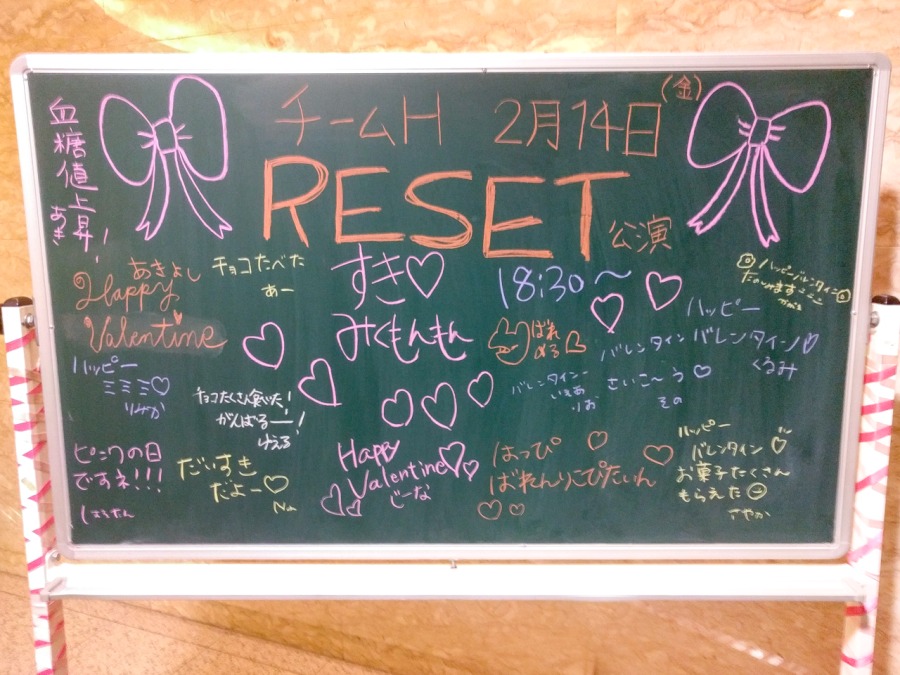 チームH 2月14日(金)
RESET 公演
18:30〜
血糖値上昇!
あき
あきよし
Happy
Valentine
チョコたべた
あー
すき♡
みくもんもん
ばれ
める
ハッピー
バレンタイン♡
くるみ
バレンタイン
さいこ〜う♡
その
バレンタインー
いぇあ
りお
ハッピーバレンタイン
ハッピー
ミミミ♡
りりか
チョコたくさん食べた!
がんばるー!
ピンクの日
ですネ!!!
だいすき
だよー♡
Na
Happy
Valentine♡
じーな
はっぴ
ばれんりこぴたいん
ハッピー
バレンタイン♡
お菓子たくさん
もらえた
さやか